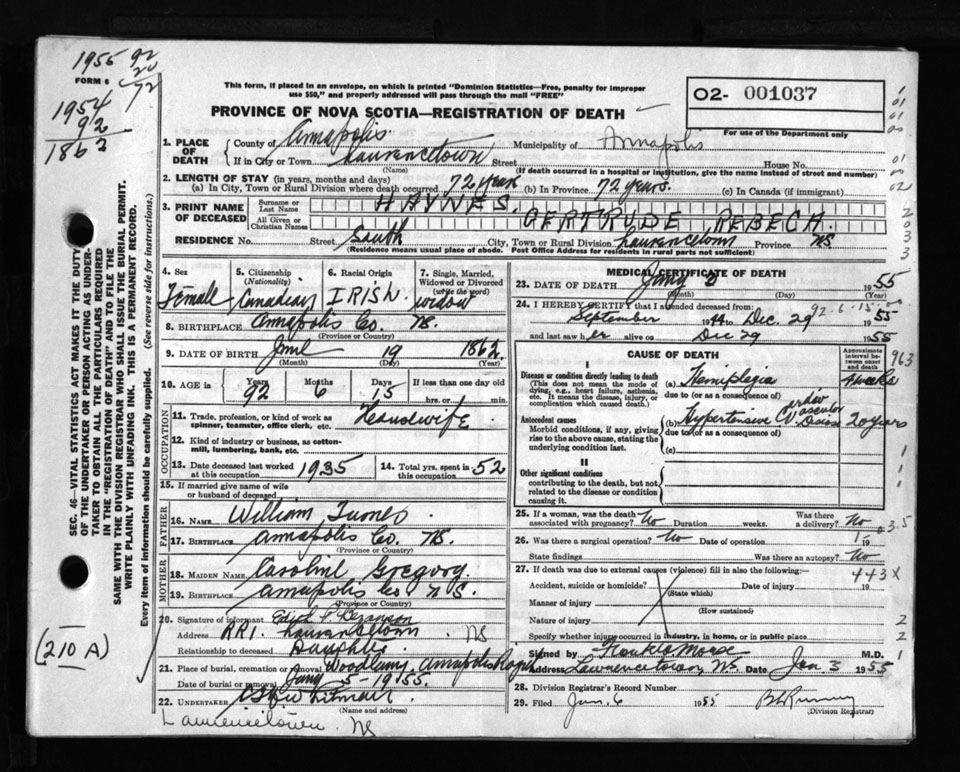 1955 92
20
72
FORM 6
1954
92
1862
This form, if placed in an envelope, on which is printed "Dominion Statistics—Free, penalty for improper
use $50," and properly addressed will pass through the mail "FREE"
PROVINCE OF NOVA SCOTIA—REGISTRATION OF DEATH
O2- 001037
For use of the Department only
1. PLACE OF DEATH
County of Annapolis Municipality of Annapolis
If in City or Town Laurencetown Street House No.
(Name) (If death occurred in a hospital or institution, give the name instead of street and number)
2. LENGTH OF STAY (in years, months and days)
(a) In City, Town or Rural Division where death occurred 72 years (b) In Province 72 years. (c) In Canada (if immigrant)
3. PRINT NAME OF DECEASED
Surname or Last Name HAYNES.
All Given or Christian Names GERTRUDE REBECH.
RESIDENCE No. Street South City, Town or Rural Division Laurencetown Province NS
(Residence means usual place of abode. Post Office Address for residents in rural parts not sufficient)
4. Sex
Female
5. Citizenship (Nationality)
Canadian
6. Racial Origin
IRISH
7. Single, Married, Widowed or Divorced (write the word)
widow
8. BIRTHPLACE Annapolis Co. NS.
(Province or Country)
9. DATE OF BIRTH June 19 1862.
(Month) (Day) (Year)
10. AGE is Years Months Days If less than one day old
92 6 15 hrs. or min.
OCCUPATION
11. Trade, profession, or kind of work as spinner, teamster, office clerk, etc. Housewife
12. Kind of industry or business, as cotton-mill, lumbering, bank, etc.
13. Date deceased last worked at this occupation 1935 14. Total yrs. spent in this occupation 52
15. If married give name of wife or husband of deceased
FATHER
16. NAME William
17. Birthplace Annapolis Co. NS.
(Province or Country)
MOTHER
18. MAIDEN NAME Caroline Gregory
19. BIRTHPLACE Annapolis Co NS.
(Province or Country)
20. Signature of informant Edith P.
Address RR1. Laurencetown NS
Relationship to deceased Daughter
21. Place of burial, cremation or removal Woodlawn, Annapolis
Date of burial or removal Jany 5-1955.
22. UNDERTAKER Whitman
(Name and address)
Lawrencetown NS
MEDICAL CERTIFICATE OF DEATH
23. DATE OF DEATH Jany 1955
(Month) (Day) (Year)
92-6-15
24. I HEREBY CERTIFY that I attended deceased from:
September 1944 to Dec. 29 1955
and last saw her alive on Dec 29 1955
CAUSE OF DEATH
Approximate interval between onset and death
963
I
Disease or condition directly leading to death
(This does not mean the mode of dying, e.g., heart failure, asthenia, etc. It means the disease, injury, or complication which caused death.)
(a) Hemiplegia 4 weeks
due to (or as a consequence of)
Antecedent causes
Morbid conditions, if any, giving rise to the above cause, stating the underlying condition last.
(b) Hypertensive Cardio Vascular Disease 20 years
due to (or as a consequence of)
(c)
II
Other significant conditions
contributing to the death, but not related to the disease or condition causing it.
25. If a woman, was the death associated with pregnancy? No Duration weeks. Was there a delivery? No
26. Was there a surgical operation? No Date of operation 19
State findings Was there an autopsy? No
27. If death was due to external causes (violence) fill in also the following:—
443X
Accident, suicide or homicide? Date of injury 19
(State which)
Manner of injury
(How sustained)
Nature of injury
Specify whether injury occurred in industry, in home, or in public place
Signed by Morse M.D.
Address Lawrencetown, NS. Date Jan 3 1955
28. Division Registrar's Record Number
29. Filed Jan. 6 1955
(Division Registrar)
SEC. 46—VITAL STATISTICS ACT MAKES IT THE DUTY
OF THE UNDERTAKER OR PERSON ACTING AS UNDER-
TAKER TO OBTAIN ALL THE PARTICULARS REQUIRED
IN THE "REGISTRATION OF DEATH" AND TO FILE THE
SAME WITH THE DIVISION REGISTRAR WHO SHALL ISSUE THE BURIAL PERMIT.
WRITE PLAINLY WITH UNFADING INK. THIS IS A PERMANENT RECORD.
Every item of information should be carefully supplied. (See reverse side for instructions.)
(210 A)